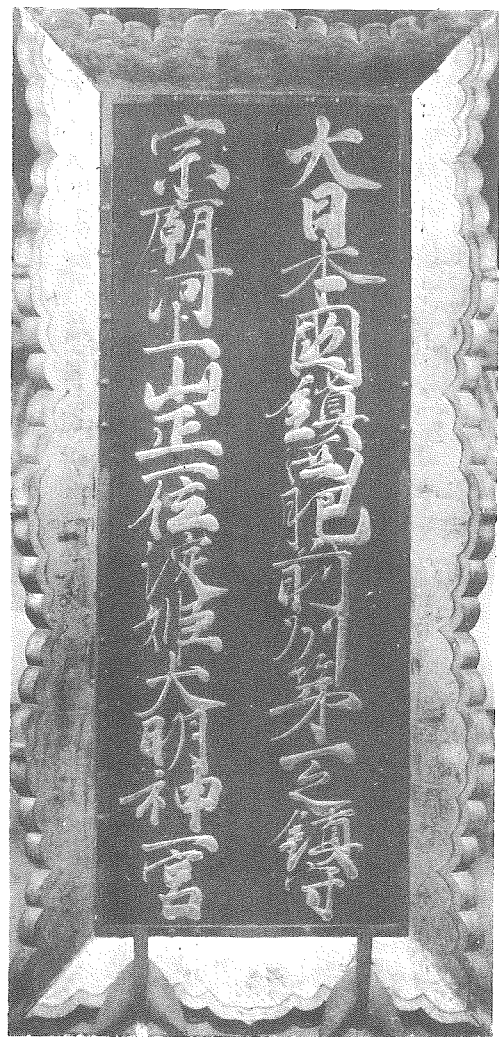 大日本國鎮西肥前州第一之鎮守
宗廟河上山正一位淀姫大明神一宮